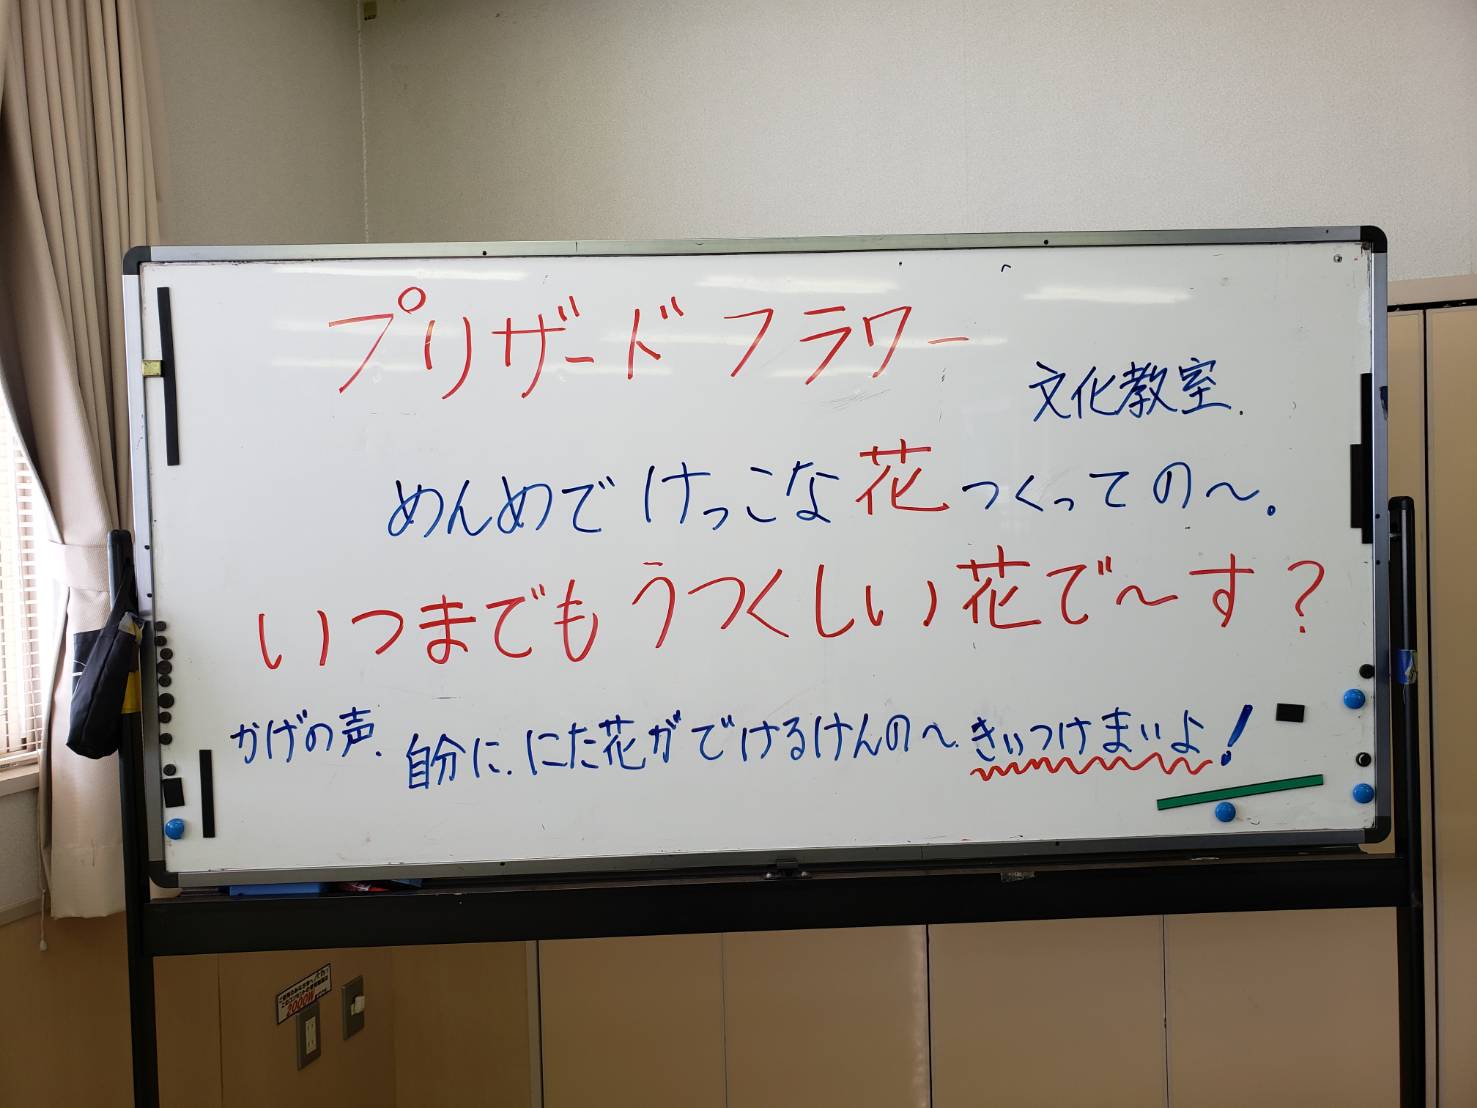 プリザードフラワー
文化教室.
めんめでけっこな花つくっての～。
いつまでもうつくしい花で～す？
かげの声. 自分に.にた花がでけるけんの～.きぃつけまいよ！
2000W